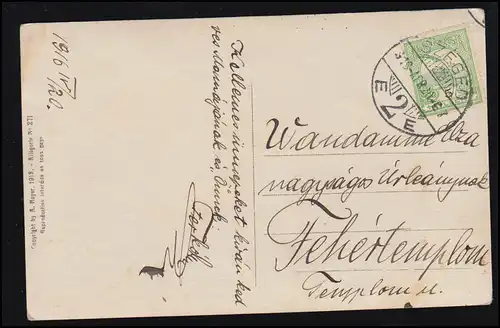 1916 IV
/20.
Kellemes ünnepeket kíván ked
ves Mamájának és Önnek
Copyright by R. Mayer, 1913. - Allegorie No 271
Reproduction interdite en tous pays
SZEGED
2
E
E
Wandamme Ilza
nagyságos Úrleánynak
Fehértemplom
Templom u.